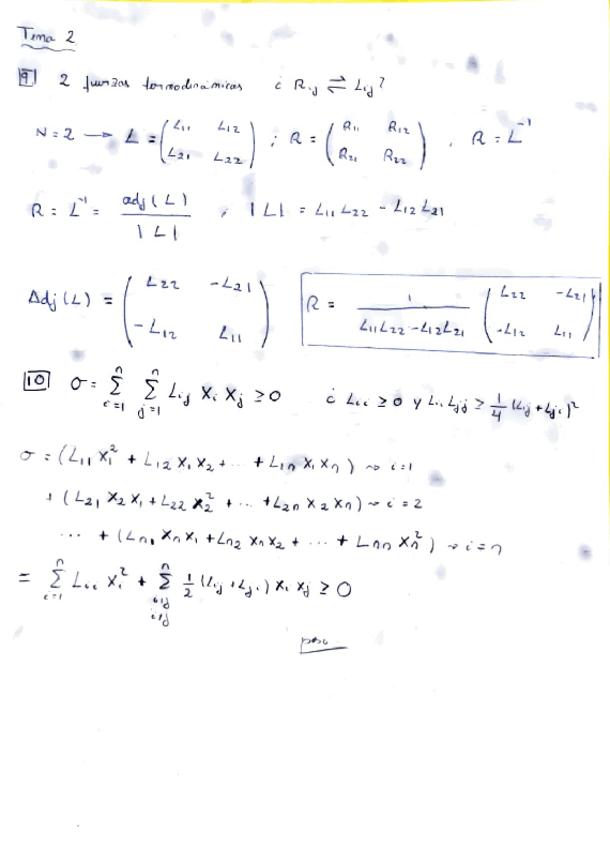 Tema 2
9 2 fuerzas termodinámicas ¿ Rij ⇌ Lij?
N=2 → L = (L11 L12 ; L21 L22) ; R = (R11 R12 ; R21 R22) , R = L^-1
R = L^-1 = adj(L) / |L| ; |L| = L11 L22 - L12 L21
Adj(L) = (L22 -L21 ; -L12 L11) R = 1 / (L11L22 - L12L21) (L22 -L21 ; -L12 L11)
10 σ = Σ(i=1, n) Σ(j=1, n) Lij Xi Xj ≥ 0 ¿ Lii ≥ 0 y Lii Ljj ≥ 1/4 (Lij + Lji)²
σ = (L11 X1² + L12 X1 X2 + ... + L1n X1 Xn) → i=1
+ (L21 X2 X1 + L22 X2² + ... + L2n X2 Xn) → i=2
... + (Ln1 Xn X1 + Ln2 Xn X2 + ... + Lnn Xn²) → i=n
= Σ(i=1, n) Lii Xi² + Σ(n) 1/2 (Lij + Lji) Xi Xj ≥ 0